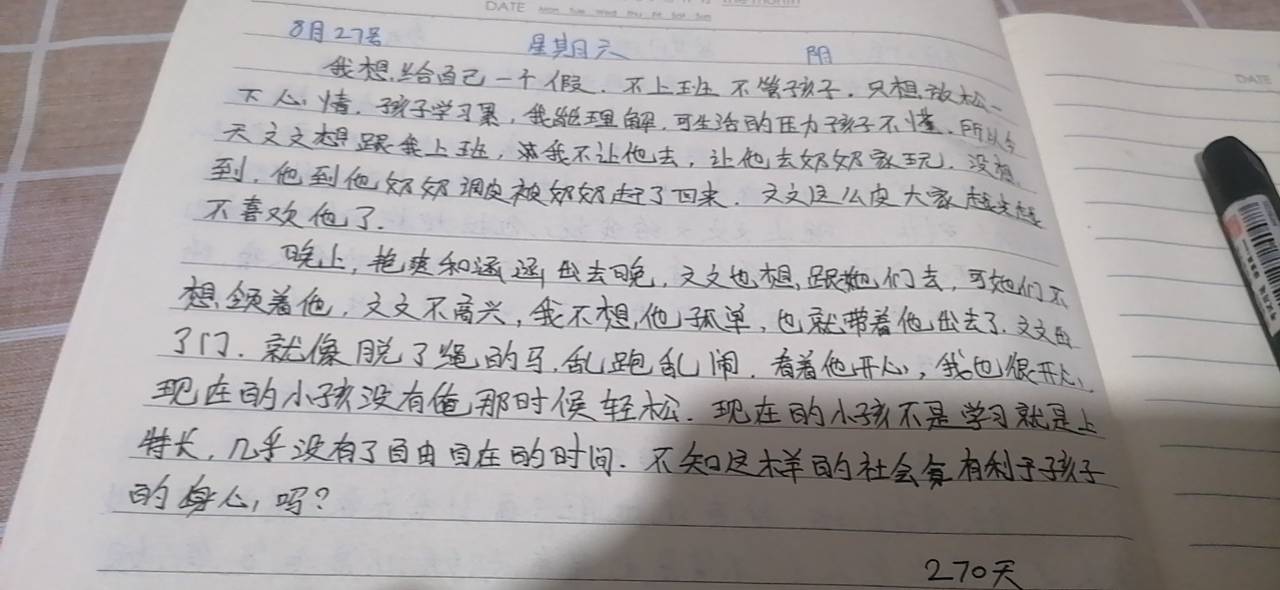 DATE Mon Tue Wed Thu Fri Sat Sun
8月27号 星期六 阴
我想给自己一个假.不上班不管孩子.只想放松一
下心情.孩子学习累,我能理解,可生活的压力孩子不懂.所以今
天文文想跟我上班,我不让他去,让他去奶奶家玩.没想
到.他到他奶奶调皮被奶奶赶了回来.文文这么皮大家越来越
不喜欢他了.
晚上,艳爽和涵涵出去晚,文文也想跟她们去,可她们不
想领着他,文文不高兴,我不想他孤单,也就带着他出去了.文文出
了门.就像脱了绳的马.乱跑乱闹.看着他开心,我也很开心,
现在的小孩没有俺那时候轻松.现在的小孩不是学习就是上
特长,几乎没有了自由自在的时间.不知这样的社会算有利于孩子
的身心吗?
270天
DATE